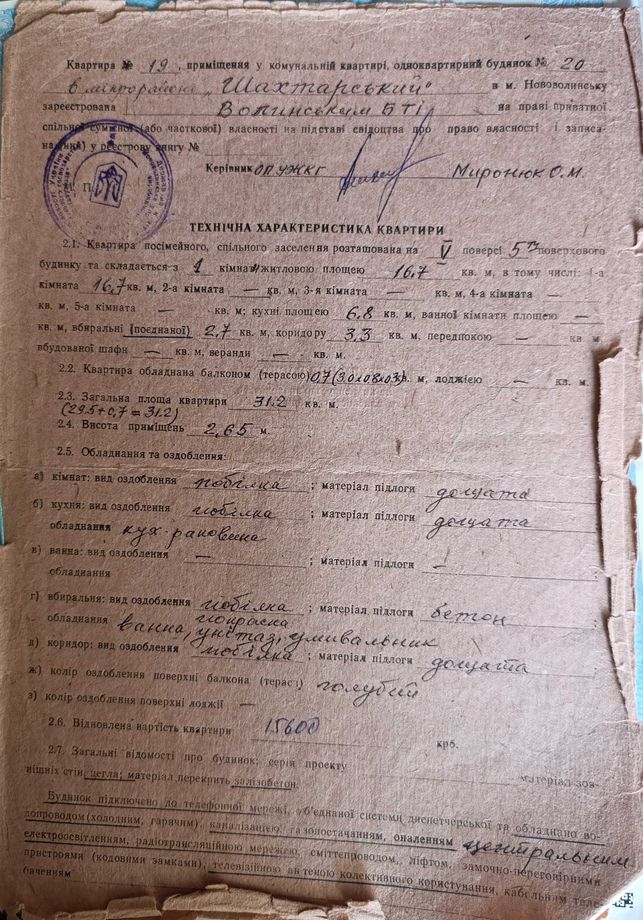 Квартира № 19, приміщення у комунальній квартирі, одноквартирний будинок № 20
в мікрорайоні „Шахтарський" в м. Нововолинську
зареєстрована Волинським БТІ на праві приватної
спільної сумісної (або часткової) власності на підставі свідоцтва про право власності і записа-
на (ний) у реєстрову книгу №
Керівник ОП УЖКГ Миронюк О.М.
М. П.
ТЕХНІЧНА ХАРАКТЕРИСТИКА КВАРТИРИ
2.1. Квартира посімейного, спільного заселення розташована на V поверсі 5ти поверхового
будинку та складається з 1 кімнати житловою площею 16,7 кв. м, в тому числі: 1-а
кімната 16,7 кв. м, 2-а кімната — кв. м, 3-я кімната — кв. м, 4-а кімната —
кв. м, 5-а кімната — кв. м; кухні площею 6,8 кв. м, ванної кімнати площею —
кв. м, вбиральні (поєднаної) 2,7 кв. м, коридору 3,3 кв. м, передпокою — кв. м
вбудованої шафи — кв. м, веранди — кв. м.
2.2. Квартира обладнана балконом (терасою) 0,7 (3.0х0.8х0.3) кв. м, лоджією — кв. м.
2.3. Загальна площа квартири 31.2 кв. м.
(29.5+0,7=31.2)
2.4. Висота приміщень 2,65 м.
2.5. Обладнання та оздоблення:
а) кімнат: вид оздоблення побілка; матеріал підлоги дощата
б) кухня: вид оздоблення побілка; матеріал підлоги дощата
обладнання кух. раковина
в) ванна: вид оздоблення —; матеріал підлоги —
обладнання
г) вбиральня: вид оздоблення побілка; матеріал підлоги бетон;
покраска
обладнання ванна, унітаз, умивальник
д) коридор: вид оздоблення побілка; матеріал підлоги дощата
ж) колір оздоблення поверхні балкона (тераси) голубий
з) колір оздоблення поверхні лоджії —
2.6. Відновлена вартість квартири 15600 крб.
2.7. Загальні відомості про будинок: серія проекту матеріал зов-
нішніх стін, цегла; матеріал перекрить залізобетон.
Будинок підключено до телефонної мережі, об'єднаної системи диспетчерської та обладнано во-
допроводом (холодним, гарячим), каналізацією, газопостачанням, опаленням центральним
електроосвітленням, радіотрансляційною мережею, сміттепроводом, ліфтом, замочно-переговорними
пристроями (кодовими замками), телевізійною антеною колективного користування, кабельним теле-
баченням